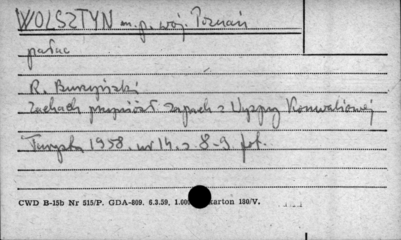 WOLSZTYN m. p. woj. Poznań
pałac
R. Burzyński
Zachach przyniósł zapach z Wyspy Konwaliowej
Turysta 1958. nr 14. s 8-9 fot.
CWD B-15b Nr 515/P. GDA-809. 6.3.59. karton 180/V.